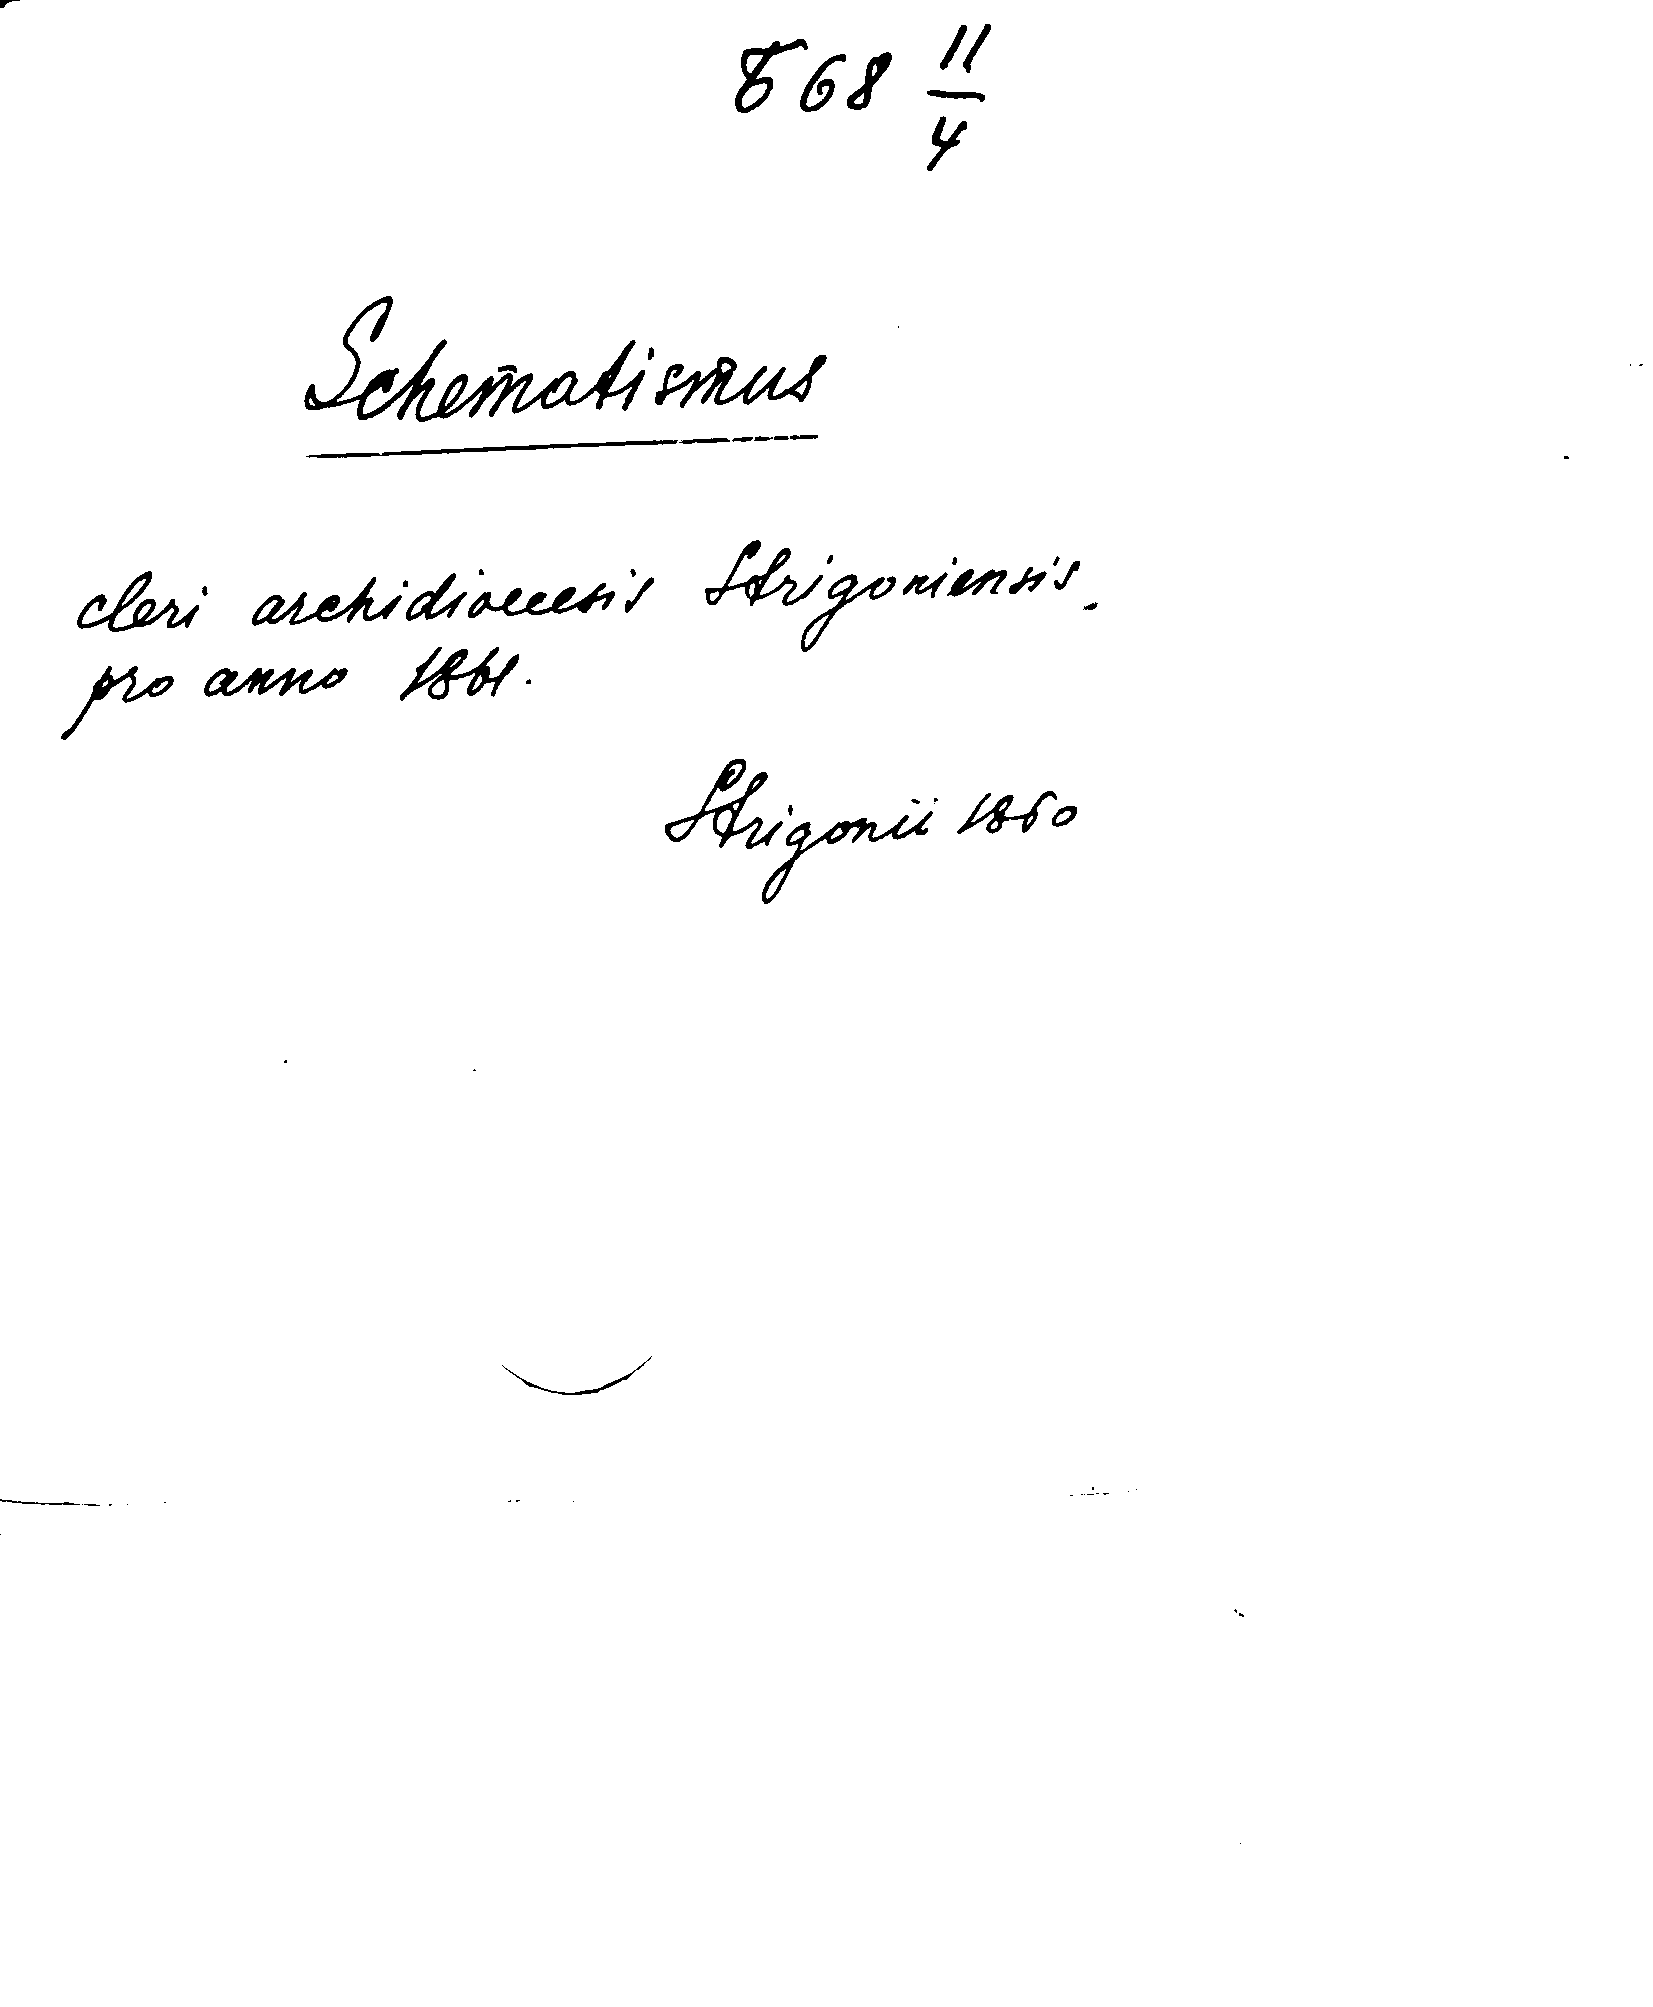 Б 68 11/4
Schematismus
cleri archidioecesis Strigoniensis.
pro anno 1861.
Strigonii 1860